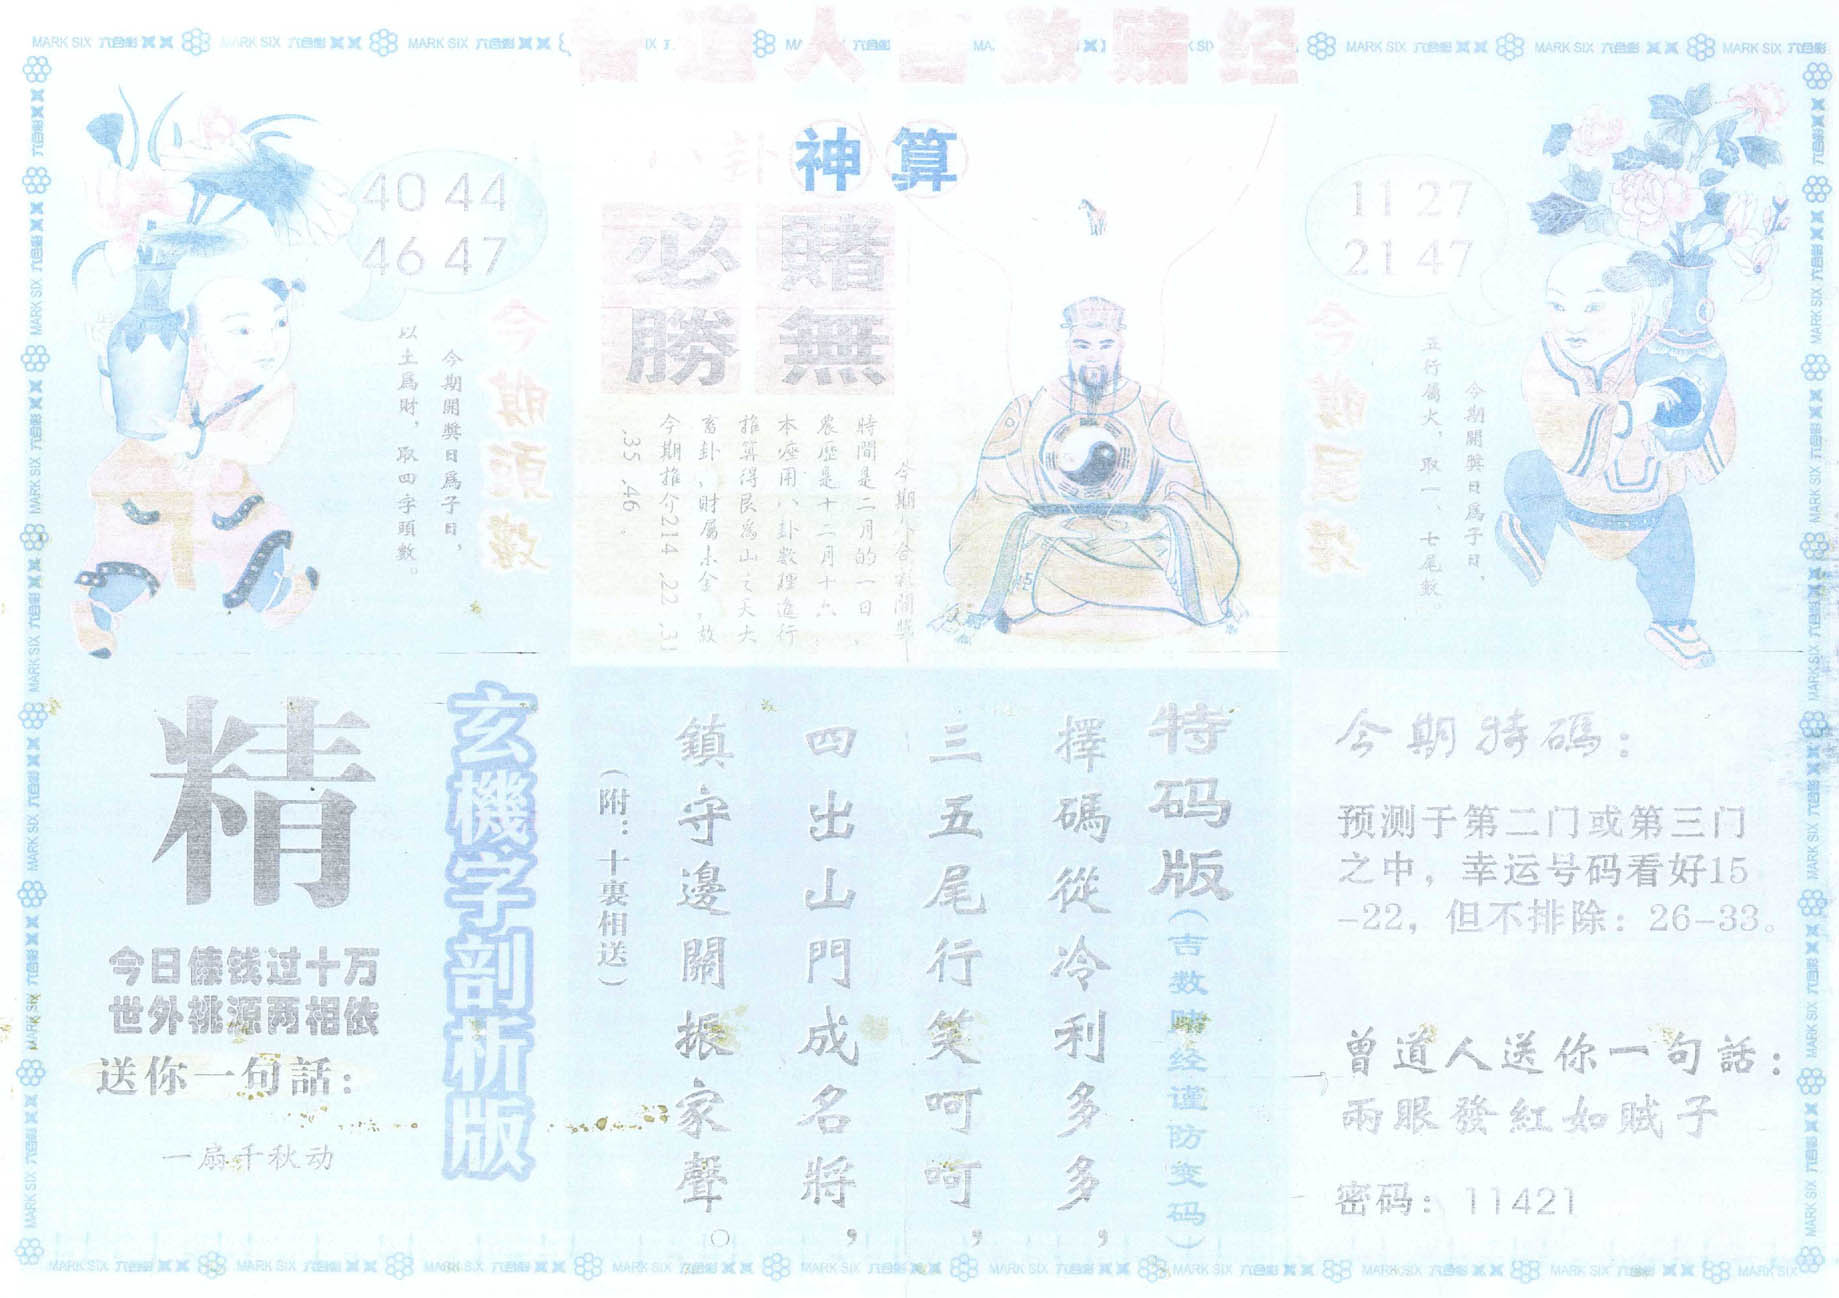 MARK SIX 六合彩
曾道人吉数赌经
八卦神算
40 44
46 47
今期頭數
今期開獎日爲子日，
以土爲財，取四字頭數。
賭無
必勝
今期六合彩開獎
時間是二月的一日，
農歷是十二月十六，
本座用八卦數理進行
推算得艮爲山之天大
畜卦、財屬未金，故
今期推介214 .22 .31
.35 .46 。
11 27
21 47
今期尾數
今期開獎日爲子日，
五行屬火，取一、七尾數。
玄機字剖析版
精
今日俵钱过十万
世外桃源两相依
送你一句話：
一扇千秋动
特码版（吉数赌经谨防变码）
擇碼從冷利多多，
三五尾行笑呵呵，
四出山門成名將，
鎮守邊關振家聲。
（附：十裏相送）
今期特碼：
预测于第二门或第三门
之中，幸运号码看好15
-22，但不排除：26-33。
曾道人送你一句話：
兩眼發紅如賊子
密码：11421